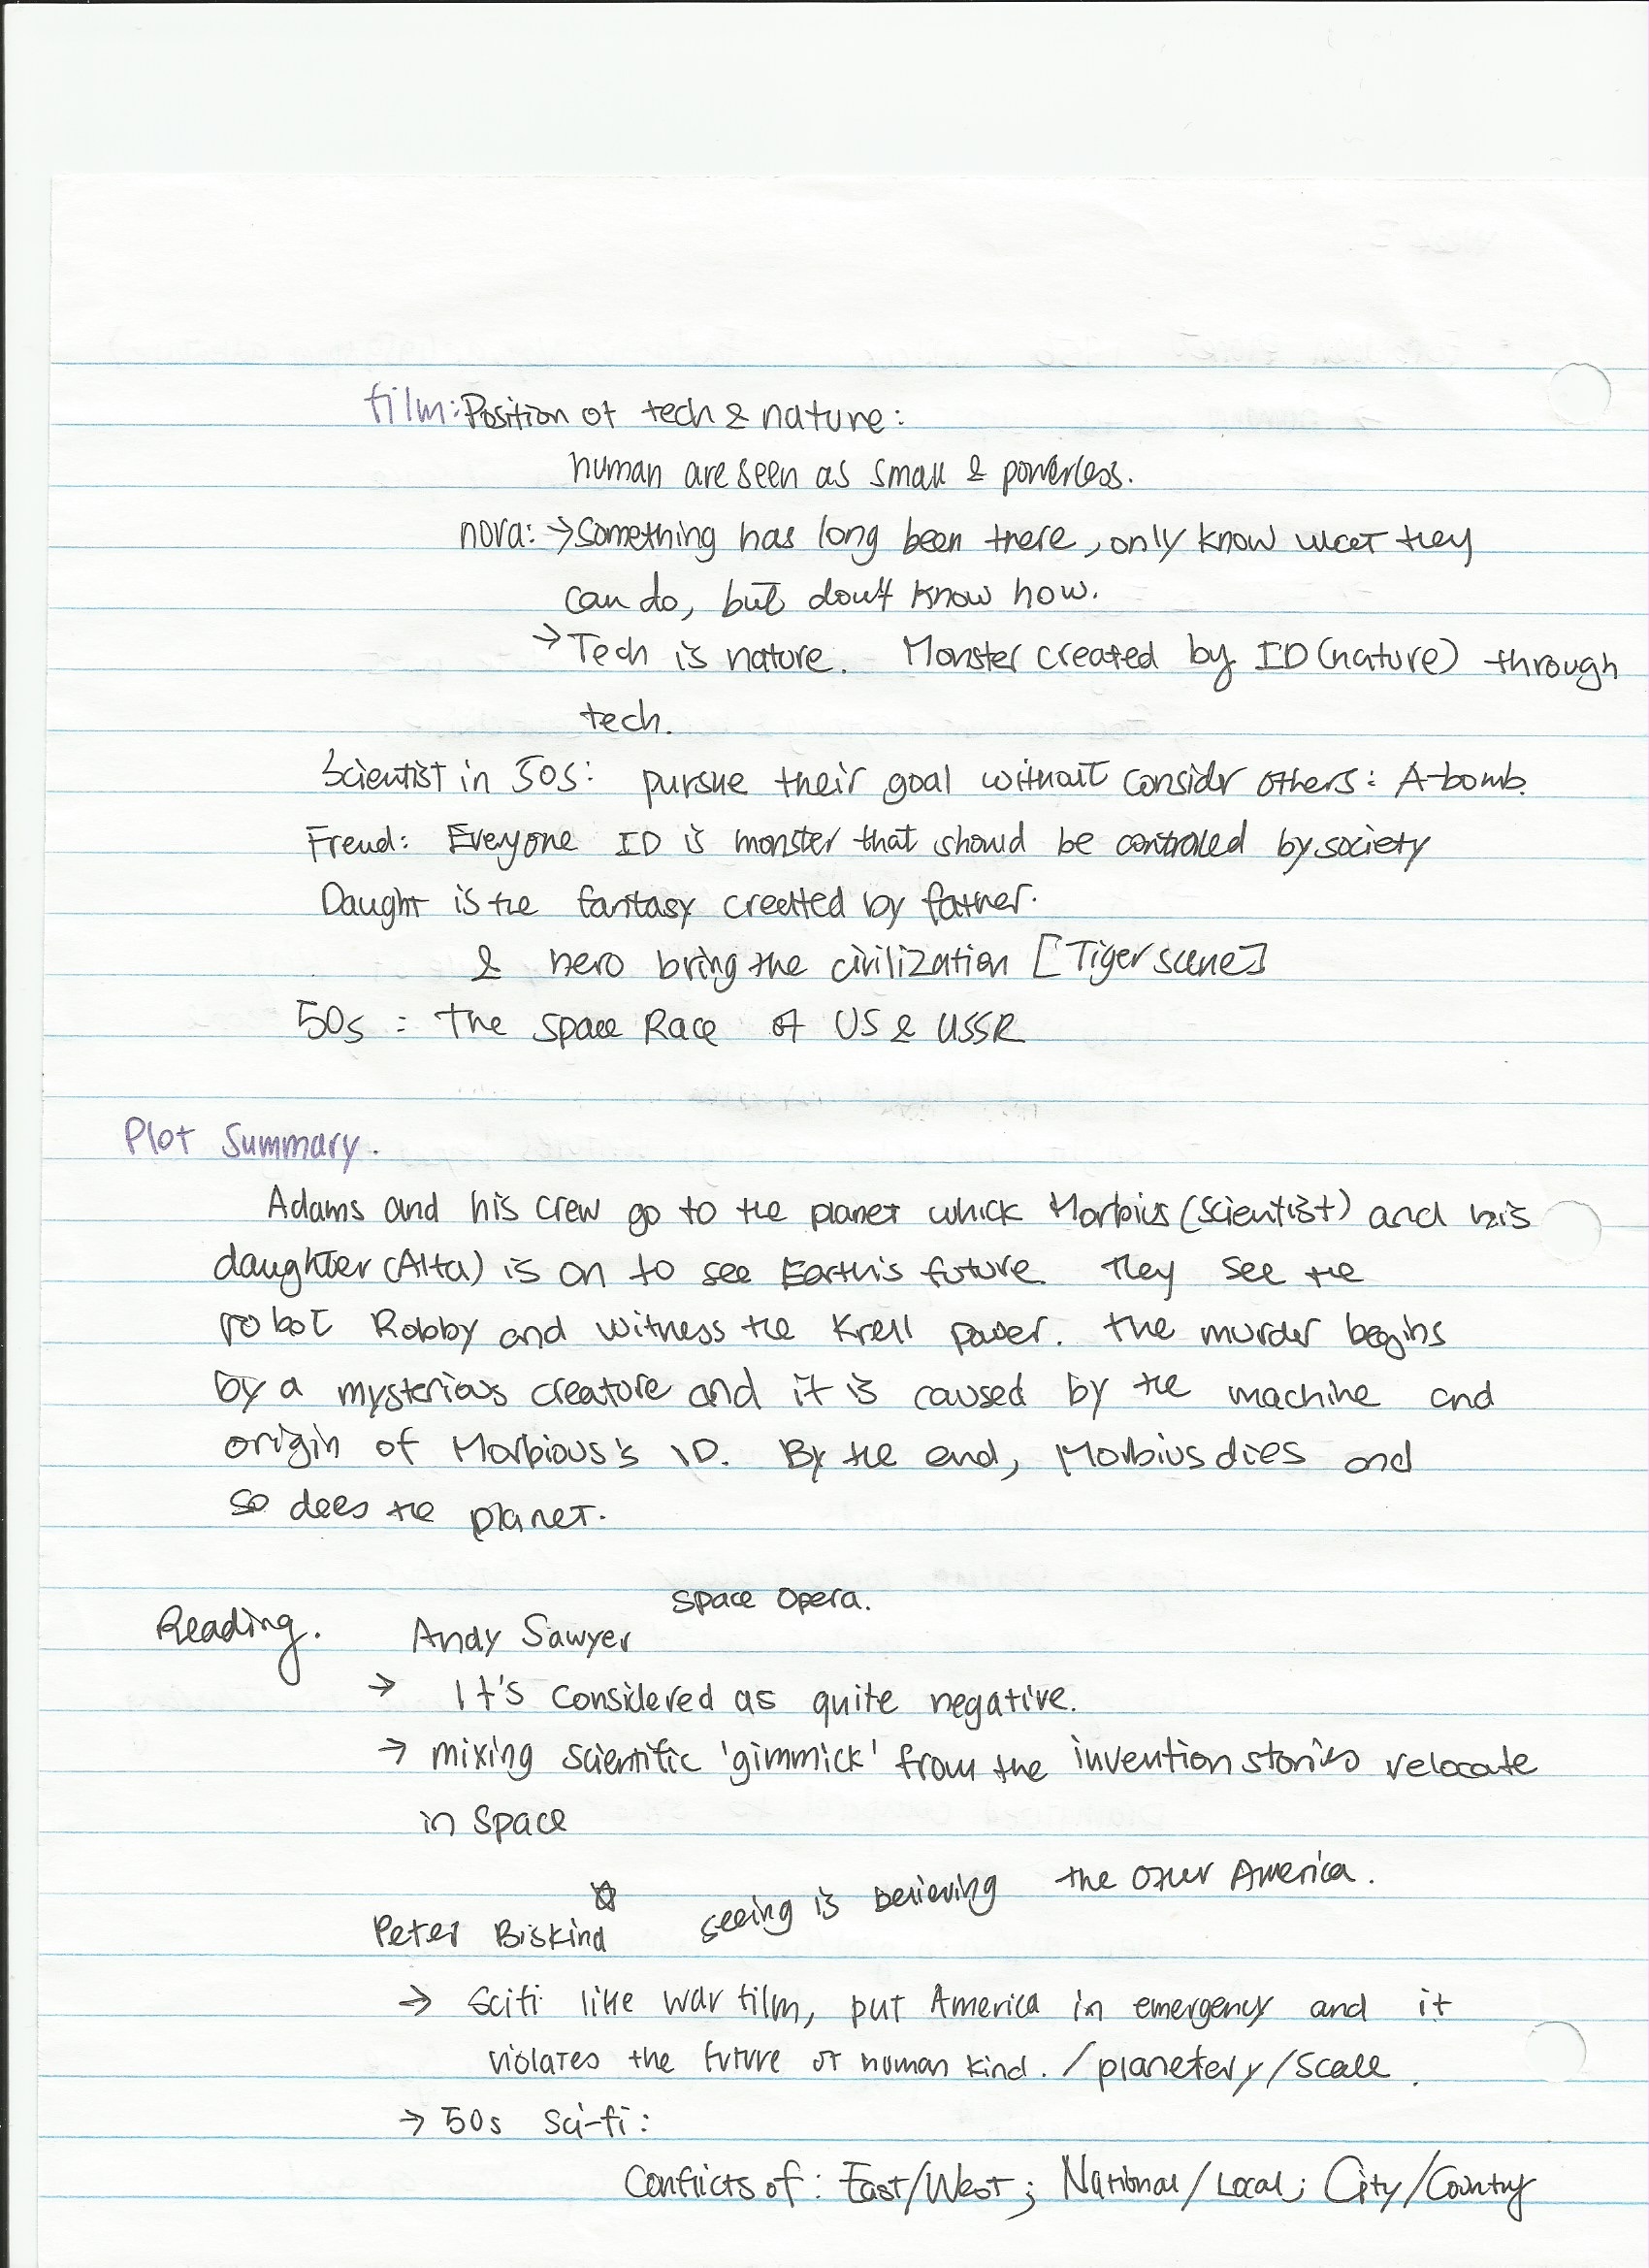 film: Position of tech & nature:
human are seen as small & powerless.
nova: → Something has long been there, only know what they
can do, but don't know how.
→ Tech is nature. Monster created by ID (nature) through
tech.
Scientist in 50s: pursue their goal without considr others: A-bomb.
Freud: Everyone ID is monster that should be controled by society
Daught is the fantasy creetted by father.
& hero bring the civilization [Tiger scene]
50s : the Space Race of US & USSR
Plot Summary.
Adams and his crew go to the planet which Morbius (scientist) and his
daughter (Alta) is on to see Earth's future. They see the
robot Robby and witness the Krell power. The murder begins
by a mysterious creature and it is caused by the machine and
origin of Morbious's ID. By the end, Morbius dies and
so does the planet.
Space Opera.
Reading. Andy Sawyer
→ It's considered as quite negative.
→ mixing scientific 'gimmick' from the invention stories relocate
in space
☆ seeing is believing the Other America.
Peter Biskind
→ Scifi like war film, put America in emergency and it
violates the future of human kind. /planetery/scale.
→ 50s Sci-fi:
Conflicts of : East/West; National/Local; City/Country